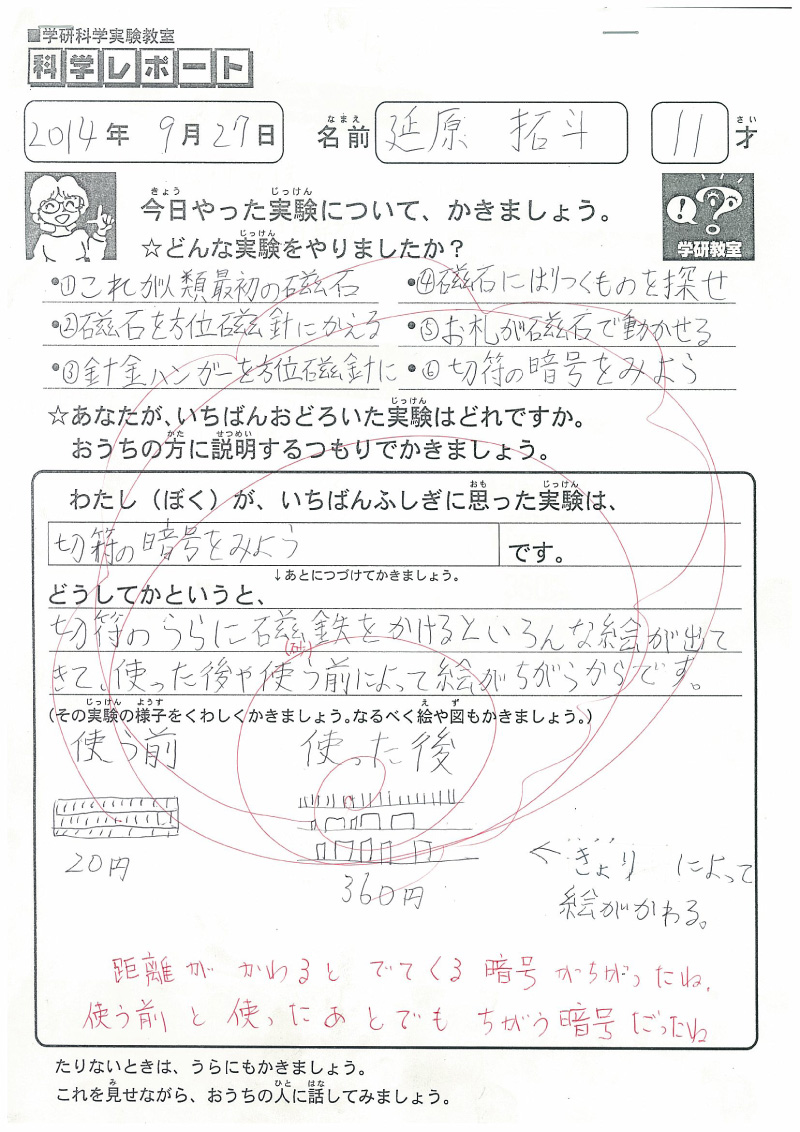 ■学研科学実験教室
科学レポート
2014年 9月27日 名前 延原 拓斗 11才
なまえ さい
きょう じっけん
今日やった実験について、かきましょう。
じっけん
☆どんな実験をやりましたか？
学研教室
•①これが人類最初の磁石
•④磁石にはりつくものを探せ
•②磁石を方位磁針にかえる
•⑤お札が磁石で動かせる
•③針金ハンガーを方位磁針に
•⑥切符の暗号をみよう
じっけん
☆あなたが、いちばんおどろいた実験はどれですか。
かた せつめい
おうちの方に説明するつもりでかきましょう。
おも じっけん
わたし（ぼく）が、いちばんふしぎに思った実験は、
切符の暗号をみよう です。
↓あとにつづけてかきましょう。
どうしてかというと、
切符のうらに磁鉄をかけるといろんな絵が出て
きて、使った後や使う前によって絵がちがうからです。
じっけん ようす え ず
(その実験の様子をくわしくかきましょう。なるべく絵や図もかきましょう。)
使う前 使った後
20円
360円
きょり によって
絵がかわる。
距離が かわると でてくる 暗号 がちがったね。
使う前 と 使った あとでも ちがう暗号だったね
たりないときは、うらにもかきましょう。
み ひと はな
これを見せながら、おうちの人に話してみましょう。